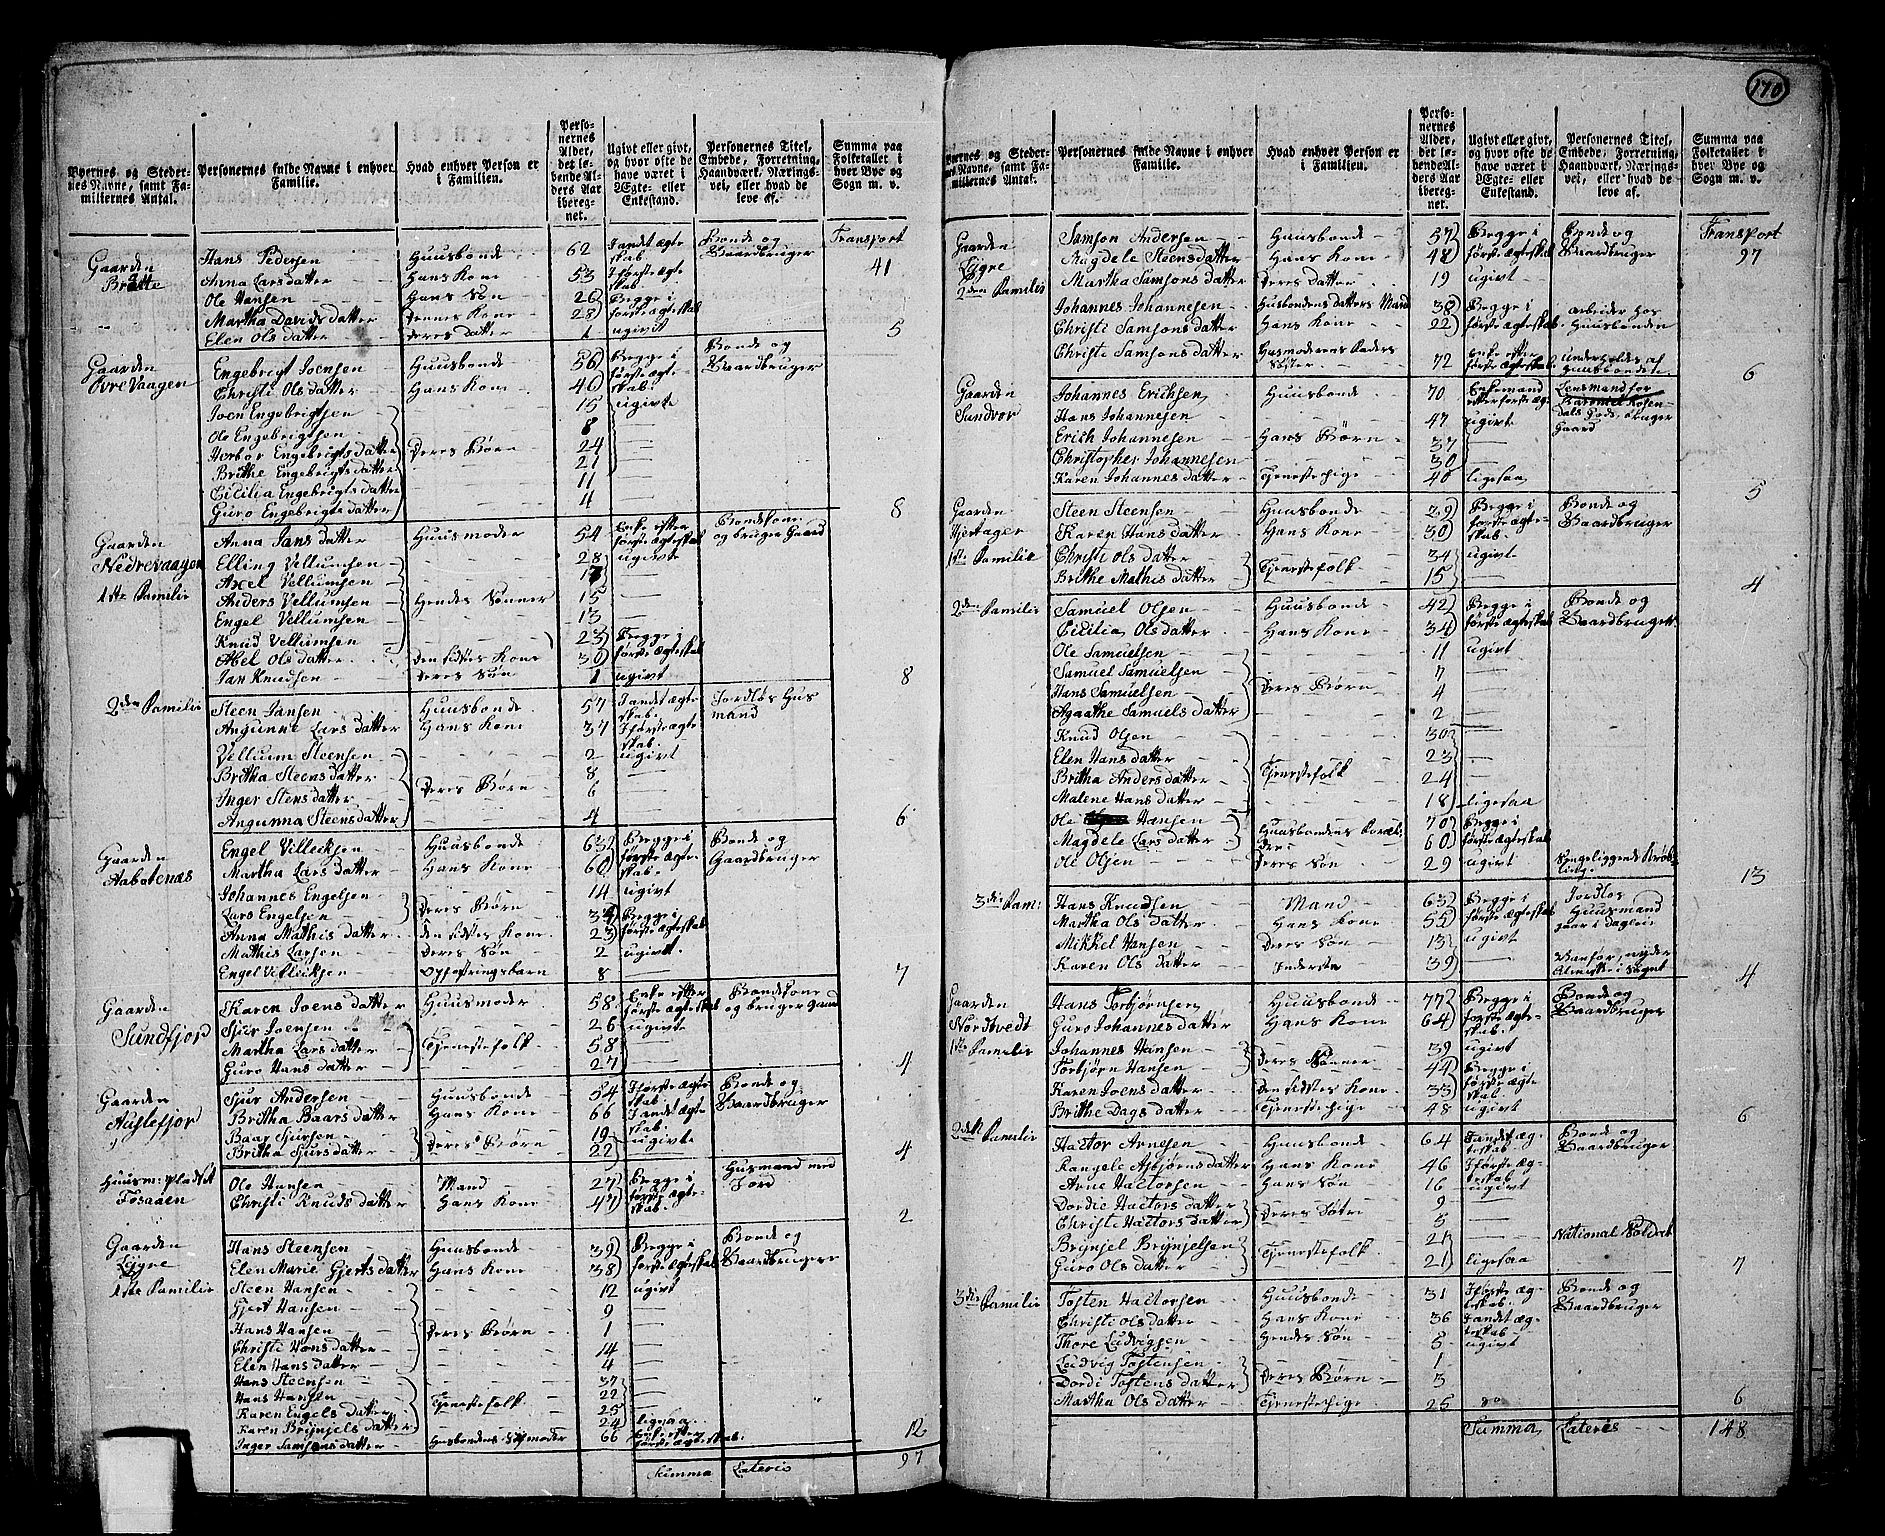 170
Byernes og Stedernes Navne, samt Familiernes Antal. | Personernes fulde Navne i enhver Familie. | Hvad enhver Person er i Familien. | Personernes Alder, det lebende Alders Aar iberegnet. | Ugivt eller givt, og hvor ofte de have været i Ægte- eller Enkestand. | Personernes Titel, Embede, Forretning, Haandværk, Næringsvei, eller hvad de leve af. | Summa paa Folketallet i hver Bye og Sogn m. v.
Transport 41
Gaarden Bratte | Hans Pedersen | Huusbonde | 62 | J andet ægteskab | Bonde og Gaardbruger
Anna Larsdatter | Hans Kone | 53 | J første ægteskab
Ole Hansen | Hans Søn | 26 | Begge i
Martha Davidsdatter | Dennes Kone | 28 | første ægteskab
Elen Olsdatter | Deres datter | 1 | ugivt | 5
Gaarden Øvre Vaagen | Engebrigt Joensen | Huusbonde | 56 | Begge i | Bonde og Gaardbruger
Christi Olsdatter | Hans Kone | 40 | første ægteskab
Joen Engebrigtsen | 15 | ugivte
Ole Engebrigtsen | 8
Herbor Engebrigtsdatter | Deres Børn | 24
Brithe Engebrigtsdatter | 21
Cicilia Engebrigtsdatter | 11
Guro Engebrigtsdatter | 4 | 8
Gaarden Nedrevaagen | Anna Jansdatter | Huusmoder | 54 | Enke efter første ægteskab | Bondekone og bruger Gaard
1ste Familie | Elling Vellumsen | 28 | ugivte
Axel Vellumsen | 17
Anders Vellumsen | Hendes Sønner | 15
Engel Vellumsen | 13
Knud Vellumsen | 23 | Begge i
Abel Olsdatter | Den sidstes Kone | 30 | første ægteskab
Jan Knudsen | Deres Søn | 1 | ugivt | 8
2den Familie | Steen Jansen | Huusbonde | 57 | J andet ægteskab | Jordløs Husmand
Angunne Larsdatter | Hans Kone | 37 | J første ægteskab
Vellum Steensen | 2 | ugivt
Britha Steensdatter | Deres Børn | 8
Inger Stensdatter | 6
Angunna Steensdatter | 4 | 6
Gaarden Aabotenæs | Engel Villecksen | Huusbonde | 63 | Begge i | Bonde og Gaardbruger
Martha Larsdatter | Hans Kone | 60 | første ægteskab
Johannes Engelsen | Deres Børn | 14 | ugivt
Lars Engelsen | 34 | Begge i
Anna Mathisdatter | den sidstes Kone | 23 | første ægteskab
Mathis Larsen | Deres Søn | 2 | ugivt
Engel Villecksen | Opfostringsbarn | 8 | 7
Gaarden Sundfjord | Karen Joensdatter | Huusmoder | 58 | Enke efter første ægteskab | Bondekone og bruger gaard
Sjur Joensen | 26 | ugivte
Martha Larsdatter | Tjenestefolk | 58
Guro Hansdatter | 27 | 4
Gaarden Auslefjord | Sjur Andersen | Huusbonde | 54 | J første ægteskab | Bonde og Gaardbruger
Britha Baarsdatter | Hans Kone | 66 | J andet ægteskab
Baar Sjursen | Deres Børn | 19 | ugivte
Britha Sjursdatter | 22 | 4
Huusm: Pladset Tosaaen | Ole Hansen | Mand | 27 | Begge i | Husmand med Jord
Christi Knudsdatter | Hans Kone | 47 | første ægteskab | 2
Gaarden Lygre | Hans Steensen | Huusbonde | 39 | Begge i | Bonde og Gaardbruger
Elen Marie Gjertsdatter | Hans Kone | 38 | første ægteskab
1ste Familie | Steen Hansen | 12 | ugivt
Gjert Hansen | 9
Hans Hansen | Deres Børn | 1
Christi Hansdatter | 14
Elen Hansdatter | 4
Hans Steensen | 37
Hans Hansen | Tjenestefolk | 22
Karen Engelsdatter | 25
Karen Brynjelsdatter | 24 | ligesaa
Inger Samsonsdatter | Husbondens Stifmoder | 66 | Enke efter første ægteskab | 12
Summa Lateris 97
Byernes og Stedernes Navne, samt Familiernes Antal. | Personernes fulde Navne i enhver Familie. | Hvad enhver Person er i Familien. | Personernes Alder, det lebende Alders Aar iberegnet. | Ugivt eller givt, og hvor ofte de have været i Ægte- eller Enkestand. | Personernes Titel, Embede, Forretning, Haandværk, Næringsvei, eller hvad de leve af. | Summa paa Folketallet i hver Bye og Sogn m. v.
Transport 97
Gaarden Lygre | Samson Andersen | Huusbonde | 57 | Begge i | Bonde og Gaardbruger
Magdele Steensdatter | Hans Kone | 48 | første ægteskab
2den Familie | Martha Samsonsdatter | Deres Datter | 19 | ugivt
Johannes Johannesen | Husbondens datters Mand | 38 | Begge i | arbeider hos Huusbonden
Christi Samsonsdatter | Hans Kone | 22 | første ægteskab
Christi Samsonsdatter | Husmoderens Faders Søster | 72 | Enke efter første ægteskab | underholdes af Huusbonden | 6
Gaarden Sundvor | Johannes Erichsen | Huusbonde | 70 | Enkemand efter første æg | Lensmand for Baroniet Rosendals Gods, bruger Gaard
Hans Johannesen | 47 | ugivt
Erich Johannesen | Hans Børn | 37
Christopher Johannesen | 30
Karen Johannesdatter | Tjenestepige | 40 | ligesaa | 5
Gaarden Hjertager | Steen Steensen | Huusbonde | 29 | Begge i | Bonde og Gaardbruger
Karen Hansdatter | Hans Kone | 30 | første ægteskab
1ste Familie | Christi Olsdatter | Tjenestefolk | 34 | ugivt
Brithe Mathisdatter | 15 | 4
2den Familie | Samuel Olsen | Huusbonde | 42 | Begge i | Bonde og Gaardbruger
Cicilia Olsdatter | Hans Kone | 34 | første ægteskab
Ole Samuelsen | 11 | ugivt
Samuel Samuelsen | 7
Hans Samuelsen | Deres Børn | 4
Agaathe Samuelsdatter | 2
Knud Olsen | 30
Elen Hansdatter | 23
Britha Andersdatter | Tjenestefolk | 24
Malene Hansdatter | 18 | ligesaa
Ole Hansen | Huusbondens Foræl: | 70 | Begge i
Magdele Larsdatter | dre | 60 | første ægteskab
Ole Olsen | Deres Søn | 29 | ugivt | Sengeliggende Krøbling | 13
3die Fam: | Hans Knudsen | Mand | 63 | Begge i | Jordløs Huusmand
Martha Olsdatter | Hans Kone | 55 | første ægteskab
Mikkel Hansen | Deres Søn | 13 | ugivt
Karen Olsdatter | Inderste | 39 | Vanfør, nyder Almisse i Sognet | 4
Gaarden Nordtvedt | Hans Torbjørnsen | Huusbonde | 77 | Begge i | Bonde og Gaardbruger
Guro Johannesdatter | Hans Kone | 64 | første ægteskab
1ste Familie | Johannes Hansen | Deres Sønner | 39 | ugivt
Torbjørn Hansen | 44 | Begge i
Karen Joensdatter | Den sidstes Kone | 33 | første ægteskab
Brithe Dagsdatter | Tjenestepige | 48 | ugivt | 6
2den Familie | Hactor Arnesen | Huusbonde | 64 | J andet ægteskab | Bonde og Gaardbruger
Rangele Asbjørnsdatter | Hans Kone | 46 | J første ægteskab
Arne Hactorsen | Hans Søn | 16 | ugivt
Dordie Hactorsdatter | Deres Døtre | 9
Christi Hactorsdatter | 5
Brynjel Brynjelsen | Tjenestefolk | 21 | National Soldat
Guro Olsdatter | 21 | ligesaa | 7
3die Familie | Tosten Hactorsen | Huusbonde | 31 | J første ægteskab | Bonde og Gaardbruger
Christi Olsdatter | Hans Kone | 36 | J andet ægteskab
Thore Ludvigsen | Hendes Søn | 5 | ugivt
Ludvig Tostensen | Deres Børn | 1
Dordi Tostensdatter | 3
Martha Olsdatter | Tjenestepige | 25 | do | 6
Summa Lateris 148